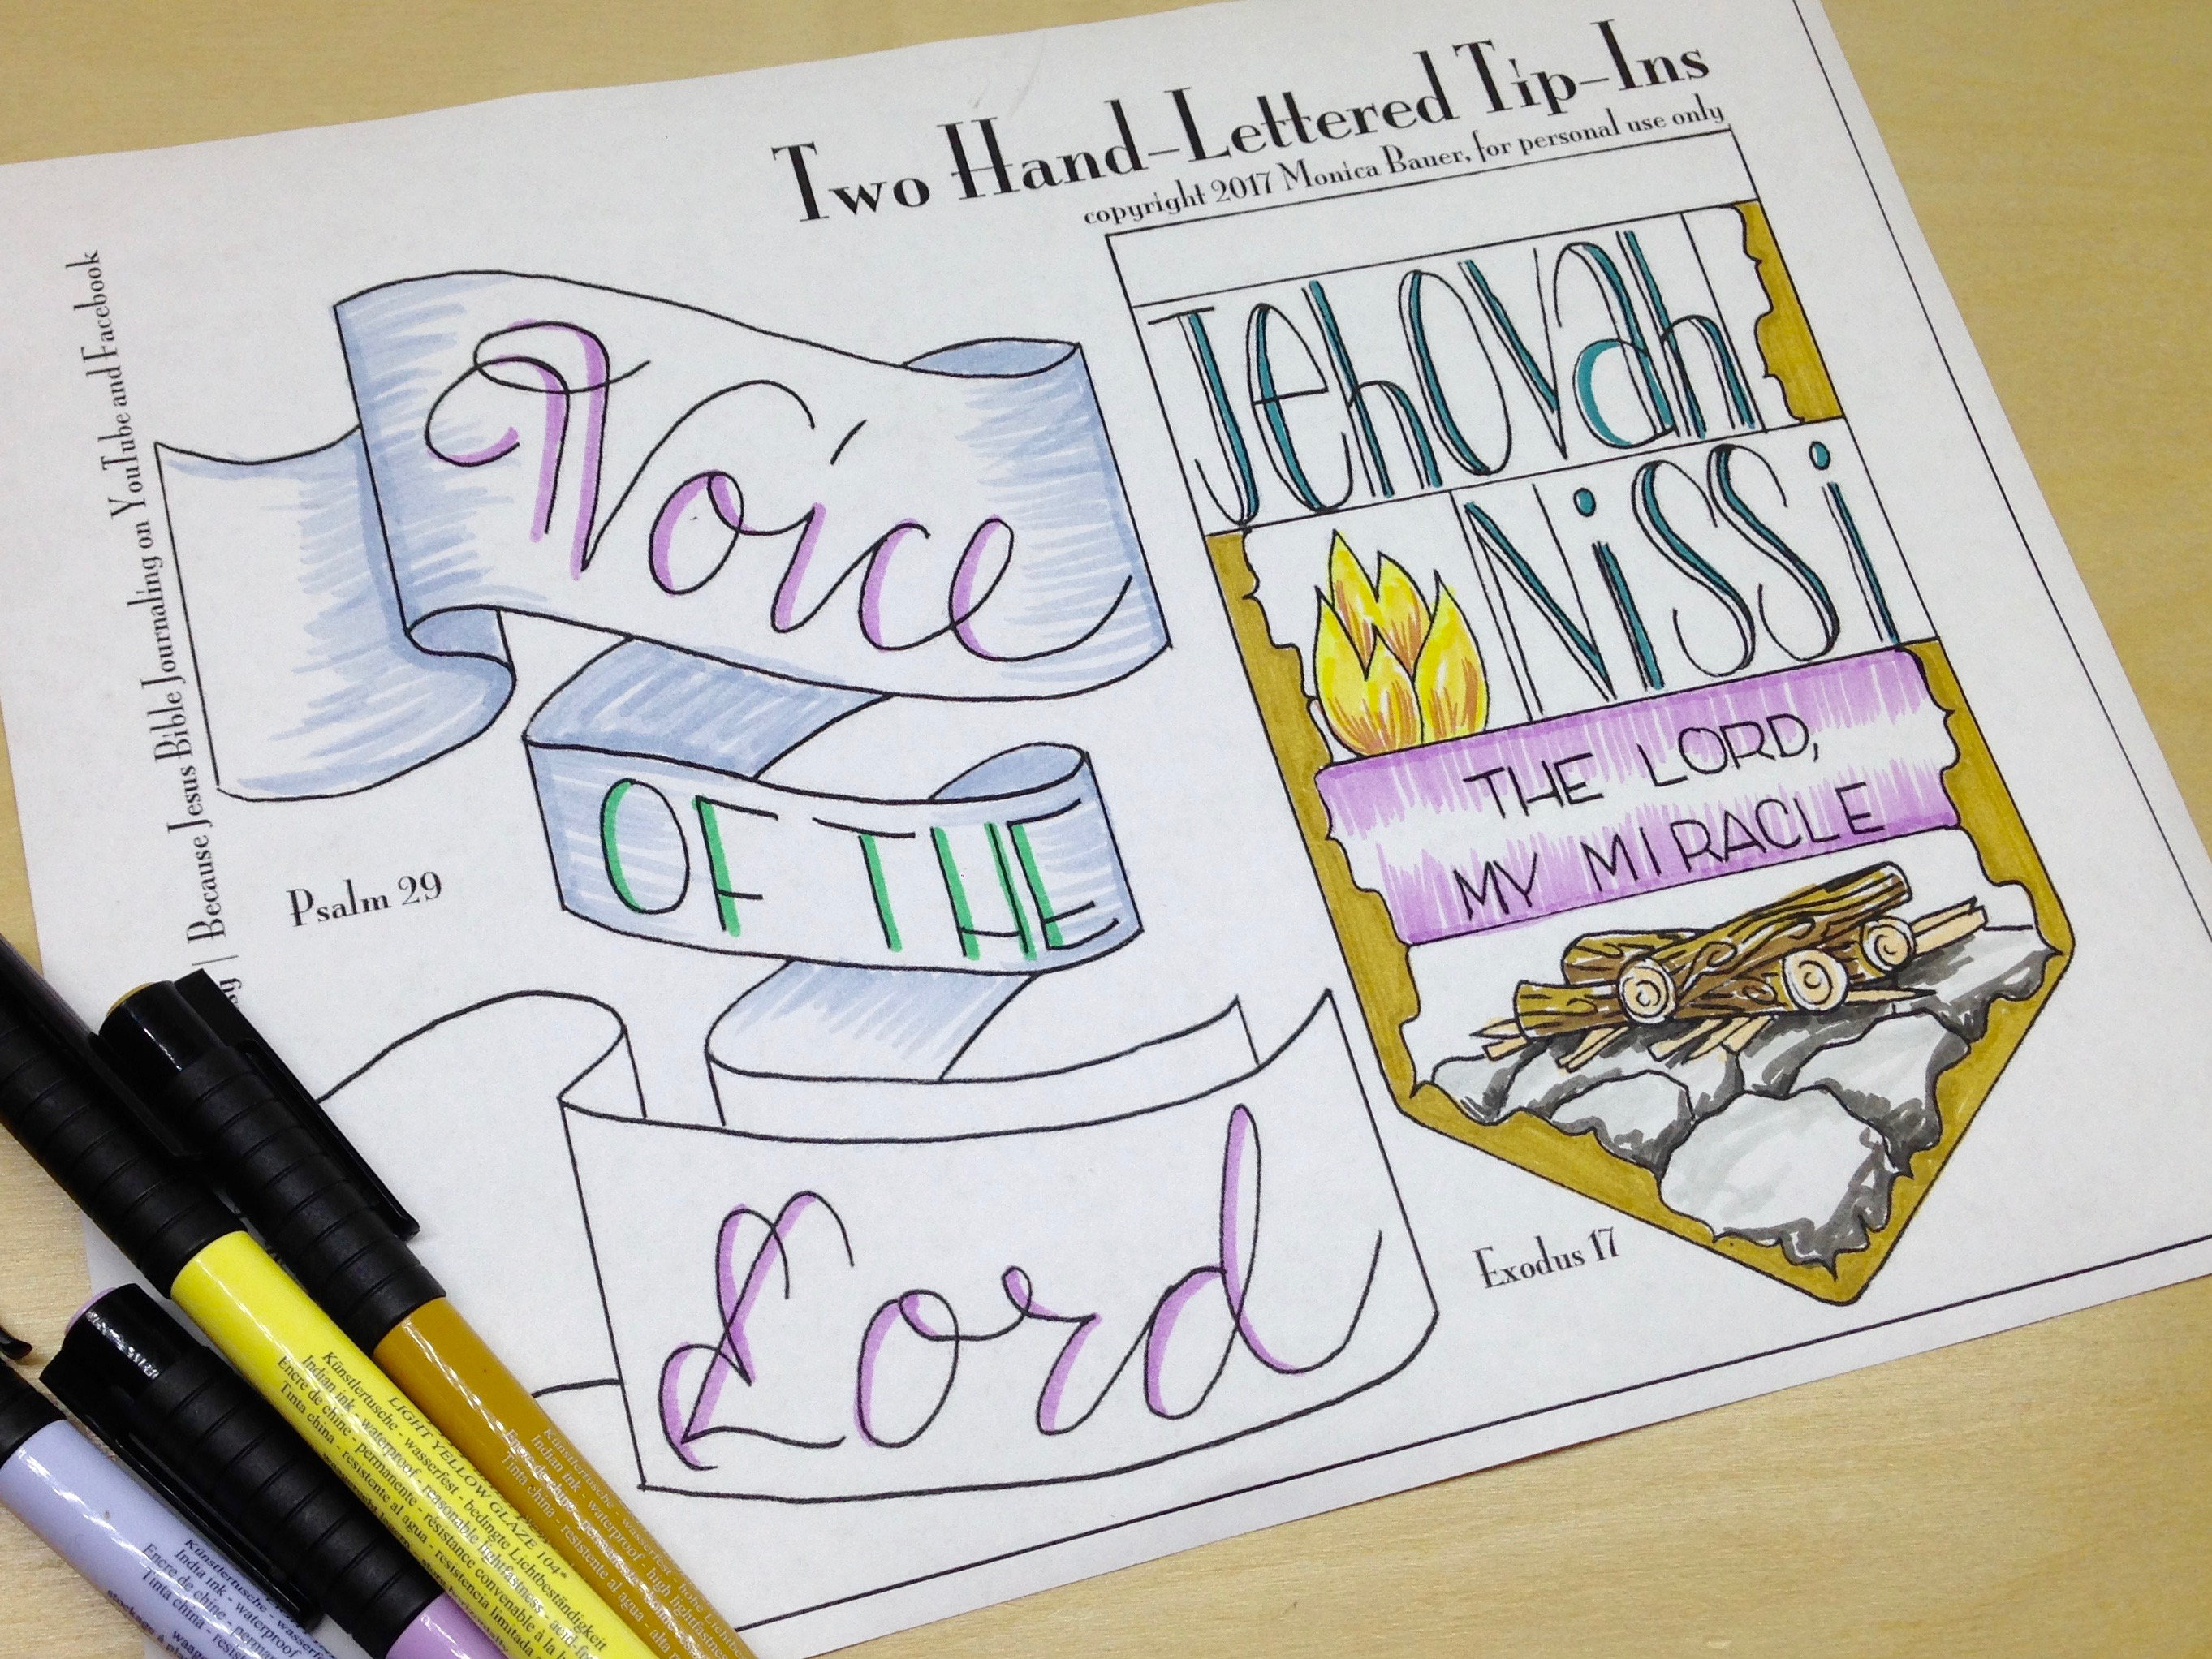 Two Hand-Lettered Tip-Ins
copyright 2017 Monica Bauer, for personal use only
Because Jesus Bible Journaling on YouTube and Facebook
Voice
OF THE
Lord
Psalm 29
Jehovah
Nissi
THE LORD,
MY MIRACLE
Exodus 17
LIGHT YELLOW GLAZE 104*
Künstlertusche - wasserfest - bedingte Lichtbeständigkeit - acid-fr
Indian ink - waterproof - reasonable lightfastness
Encre de chine - permanente - résistance convenable à la
Tinta china - resistente al agua - resistencia limitada
Künstlertusche - wasserfest - hohe Lichtbe
Indian ink - waterproof - high lightfastness
Encre de chine - permanente
Tinta china - resistente al agua - alta
Künstlertusche - wasserfest
India ink - waterproof
Encre de chine - perman
Tinta china - resis